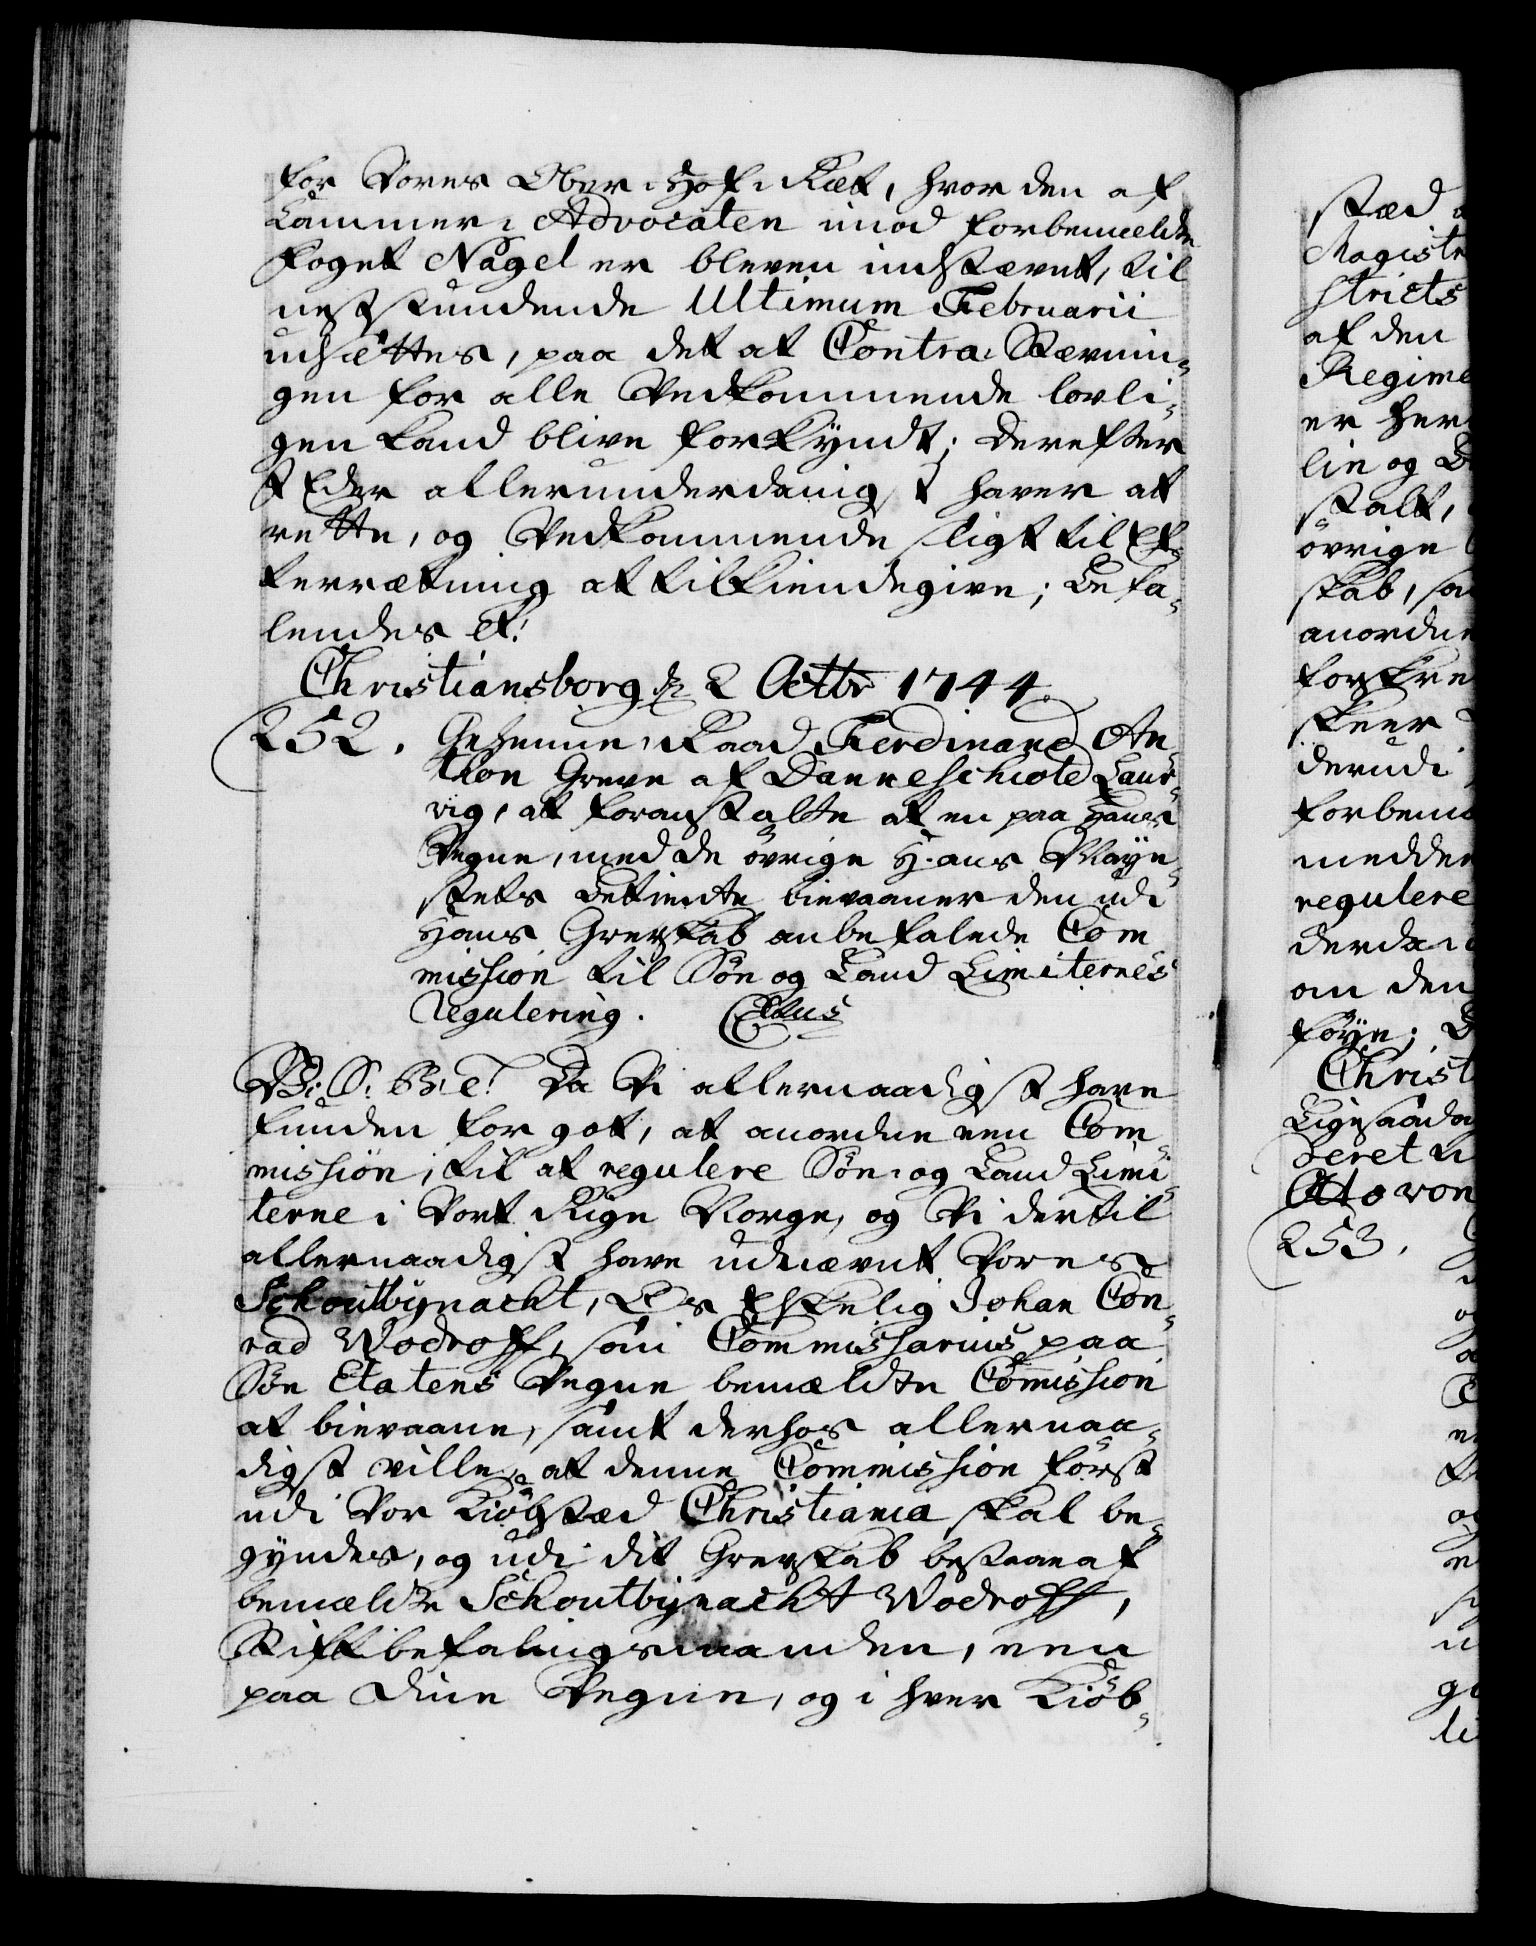 for Vores Ober-Hof-Ræt, hvor den af
Cammer-Advocaten imod forbemeldte
Foget Nagel er bleven indstævnt, til
nestkundende Ultimum Februarii
udsættes, paa det at Contra-Stævnin-
gen for alle Vedkommende lovli-
gen kand blive forkyndt; Derefter
I Eder allerunderdanigst haver at
rette, og Vedkommende sligt til Ef-
terrætning at tilkiendegive; Befa-
lendes etc:
Christiansborg d. 2 Octbr 1744
252. Geheime-Raad Ferdinand An-
thon Greve af Danneschiold Laur-
vig, at foranstalte at en paa Hans
Vegne, med de øvrige Hans Maye-
stets Betiente bievaaner den udi
Hans Grevskab anbefalede Com
mission til Søe og Land Limiternes
Regulering.
V: S: G: T: Da Vi allernaadigst have
funden for got, at anordne een Com-
mission, til at regulere Søe- og Land Limi-
terne i Vort Rige Norge, og Vi dertil
allernaadigst have udnævnt Vores
Schoutbynacht, Os Elskelig Johan Con-
rad Wodroff, som Commissarius paa
Søe Etatens Vegne bemældte Commission
at bievaane, samt derhos allernaa-
digst ville, at denne Commission først
udi Vor Kiøbstæd Christiania skal be-
gyndes, og udi dit Grevskab bestaae af
bemældte Schoutbynacht Wodroff,
Stiftbefalingsmanden, een
paa Dine Vegne, og i hver Kiøb-
stæd
Magistr
stricts
af den
Regime
er her
lie og
stalt,
øvrige
skab, sa
anordne
forskre
skeer
derudi
forbem
medde
regulere
derda
om den
føye;
Christ
Ligesaada
Beret
Otto von
253.